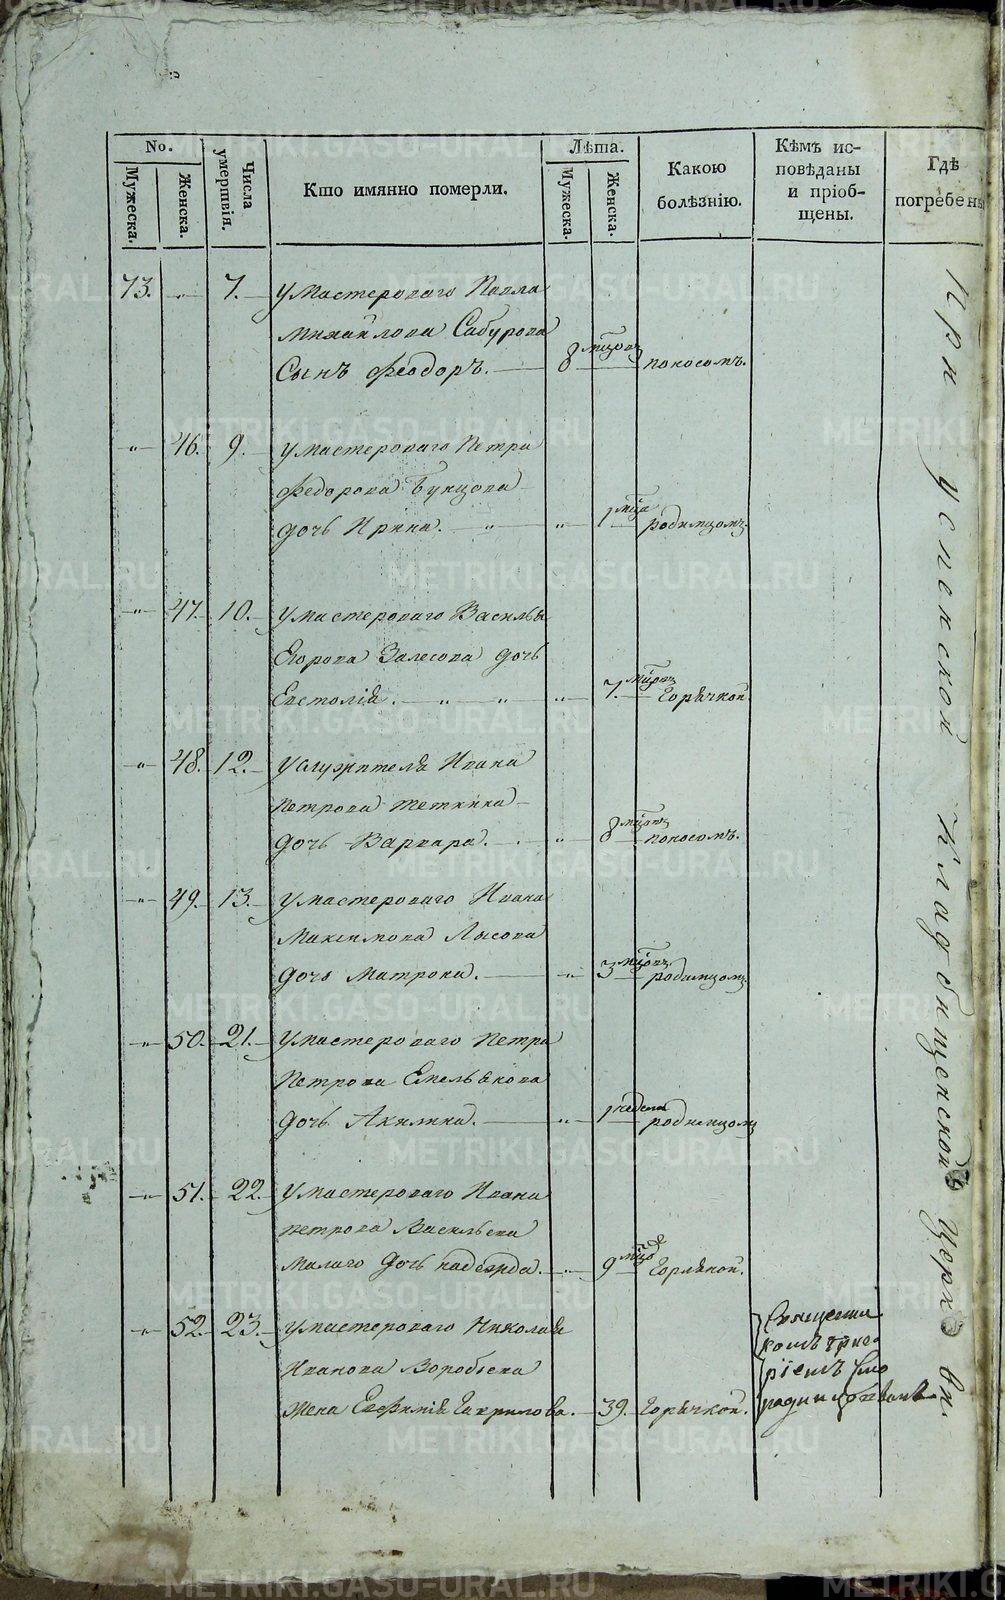 No.
Мужеска.
Женска.
Числа умертвія.
Кто имянно померли.
Лѣта.
Мужеска.
Женска.
Какою болѣзнію.
Кѣмъ ис-
повѣданы
и пріоб-
щены.
Гдѣ
погребены
73. „ 7. У мастероваго Павла
Михайлова Сабурова
Сынъ Феодоръ. 8 мцовъ поносомъ.
„ 46. 9. У мастероваго Петра
Федорова Бунцова
дочь Ирина. „ „ 1 мца родимцомъ.
„ 47. 10. У мастероваго Василья
Егорова Залесова дочь
Евстолія. „ „ „ 7. мцовъ Горячкой.
„ 48. 12. У служителя Ивана
Петрова Теткина
дочь Варвара. „ 8 мцовъ поносомъ.
„ 49. 13. У мастероваго Ивана
Максимова Лысова
дочь Матрона. „ 3 мцовъ родимцомъ.
„ 50. 21. У мастероваго Петра
Петрова Емельянова
дочь Акилина. „ 1 недели родимцомъ
„ 51. 22. У мастероваго Ивана
Петрова Васильева
Малаго дочь Надежда. „ 9 Горячкой.
„ 52. 23. У мастероваго Николая
Иванова Воробьева
Жена Евфимія Гаврилова. 39. Горячкой.
Священни
комъ
ріемъ
При Успенской Кладбищенской Церкви.
METRIKI.GASO-URAL.RU